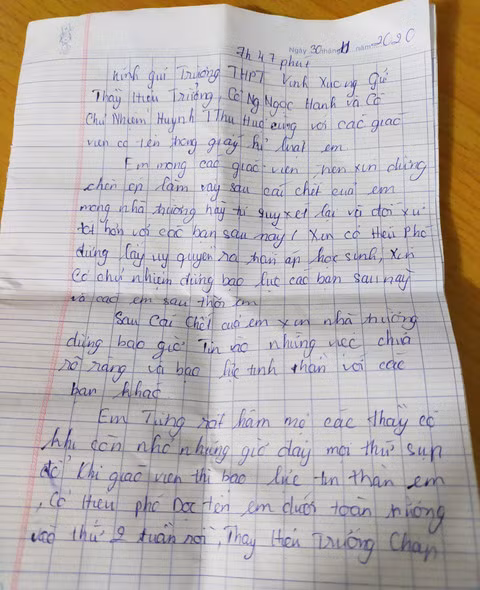 7h 47 phút
Ngày 30 tháng 11 năm 2020
Kính gửi Trường THPT Vĩnh Xương Gửi
Thầy Hiệu Trưởng, Cô Ng Ngọc Hạnh và Cô
Chủ Nhiệm Huỳnh T Thu Huệ cùng với các giáo
viên có tên trong giấy kỉ luật em
Em mong các giáo viên, nên xin dừng
chèn ép làm vậy sau cái chết của em
mong nhà trường hãy tự suy xét lại và đối xử
tốt hơn với các bạn sau này! Xin cô Hiệu Phó
đừng lấy uy quyền ra đàn áp học sinh, xin
Cô chủ nhiệm đừng bạo lực các bạn sau này
và các em sau thời em
Sau Cái Chết của em xin nhà trường
đừng bao giờ Tin vào những việc chưa
rõ ràng và bạo lực tinh thần với các
bạn khác
Em Từng rất hâm mộ các thầy cô
khi còn nhỏ nhưng giờ đây mọi thứ sụp
đổ Khi giáo viên thì bạo lực tin thần em
, Cô Hiệu phó Đọc tên em dưới toàn
vào thứ 2 tuần rồi, Thầy Hiệu Trưởng